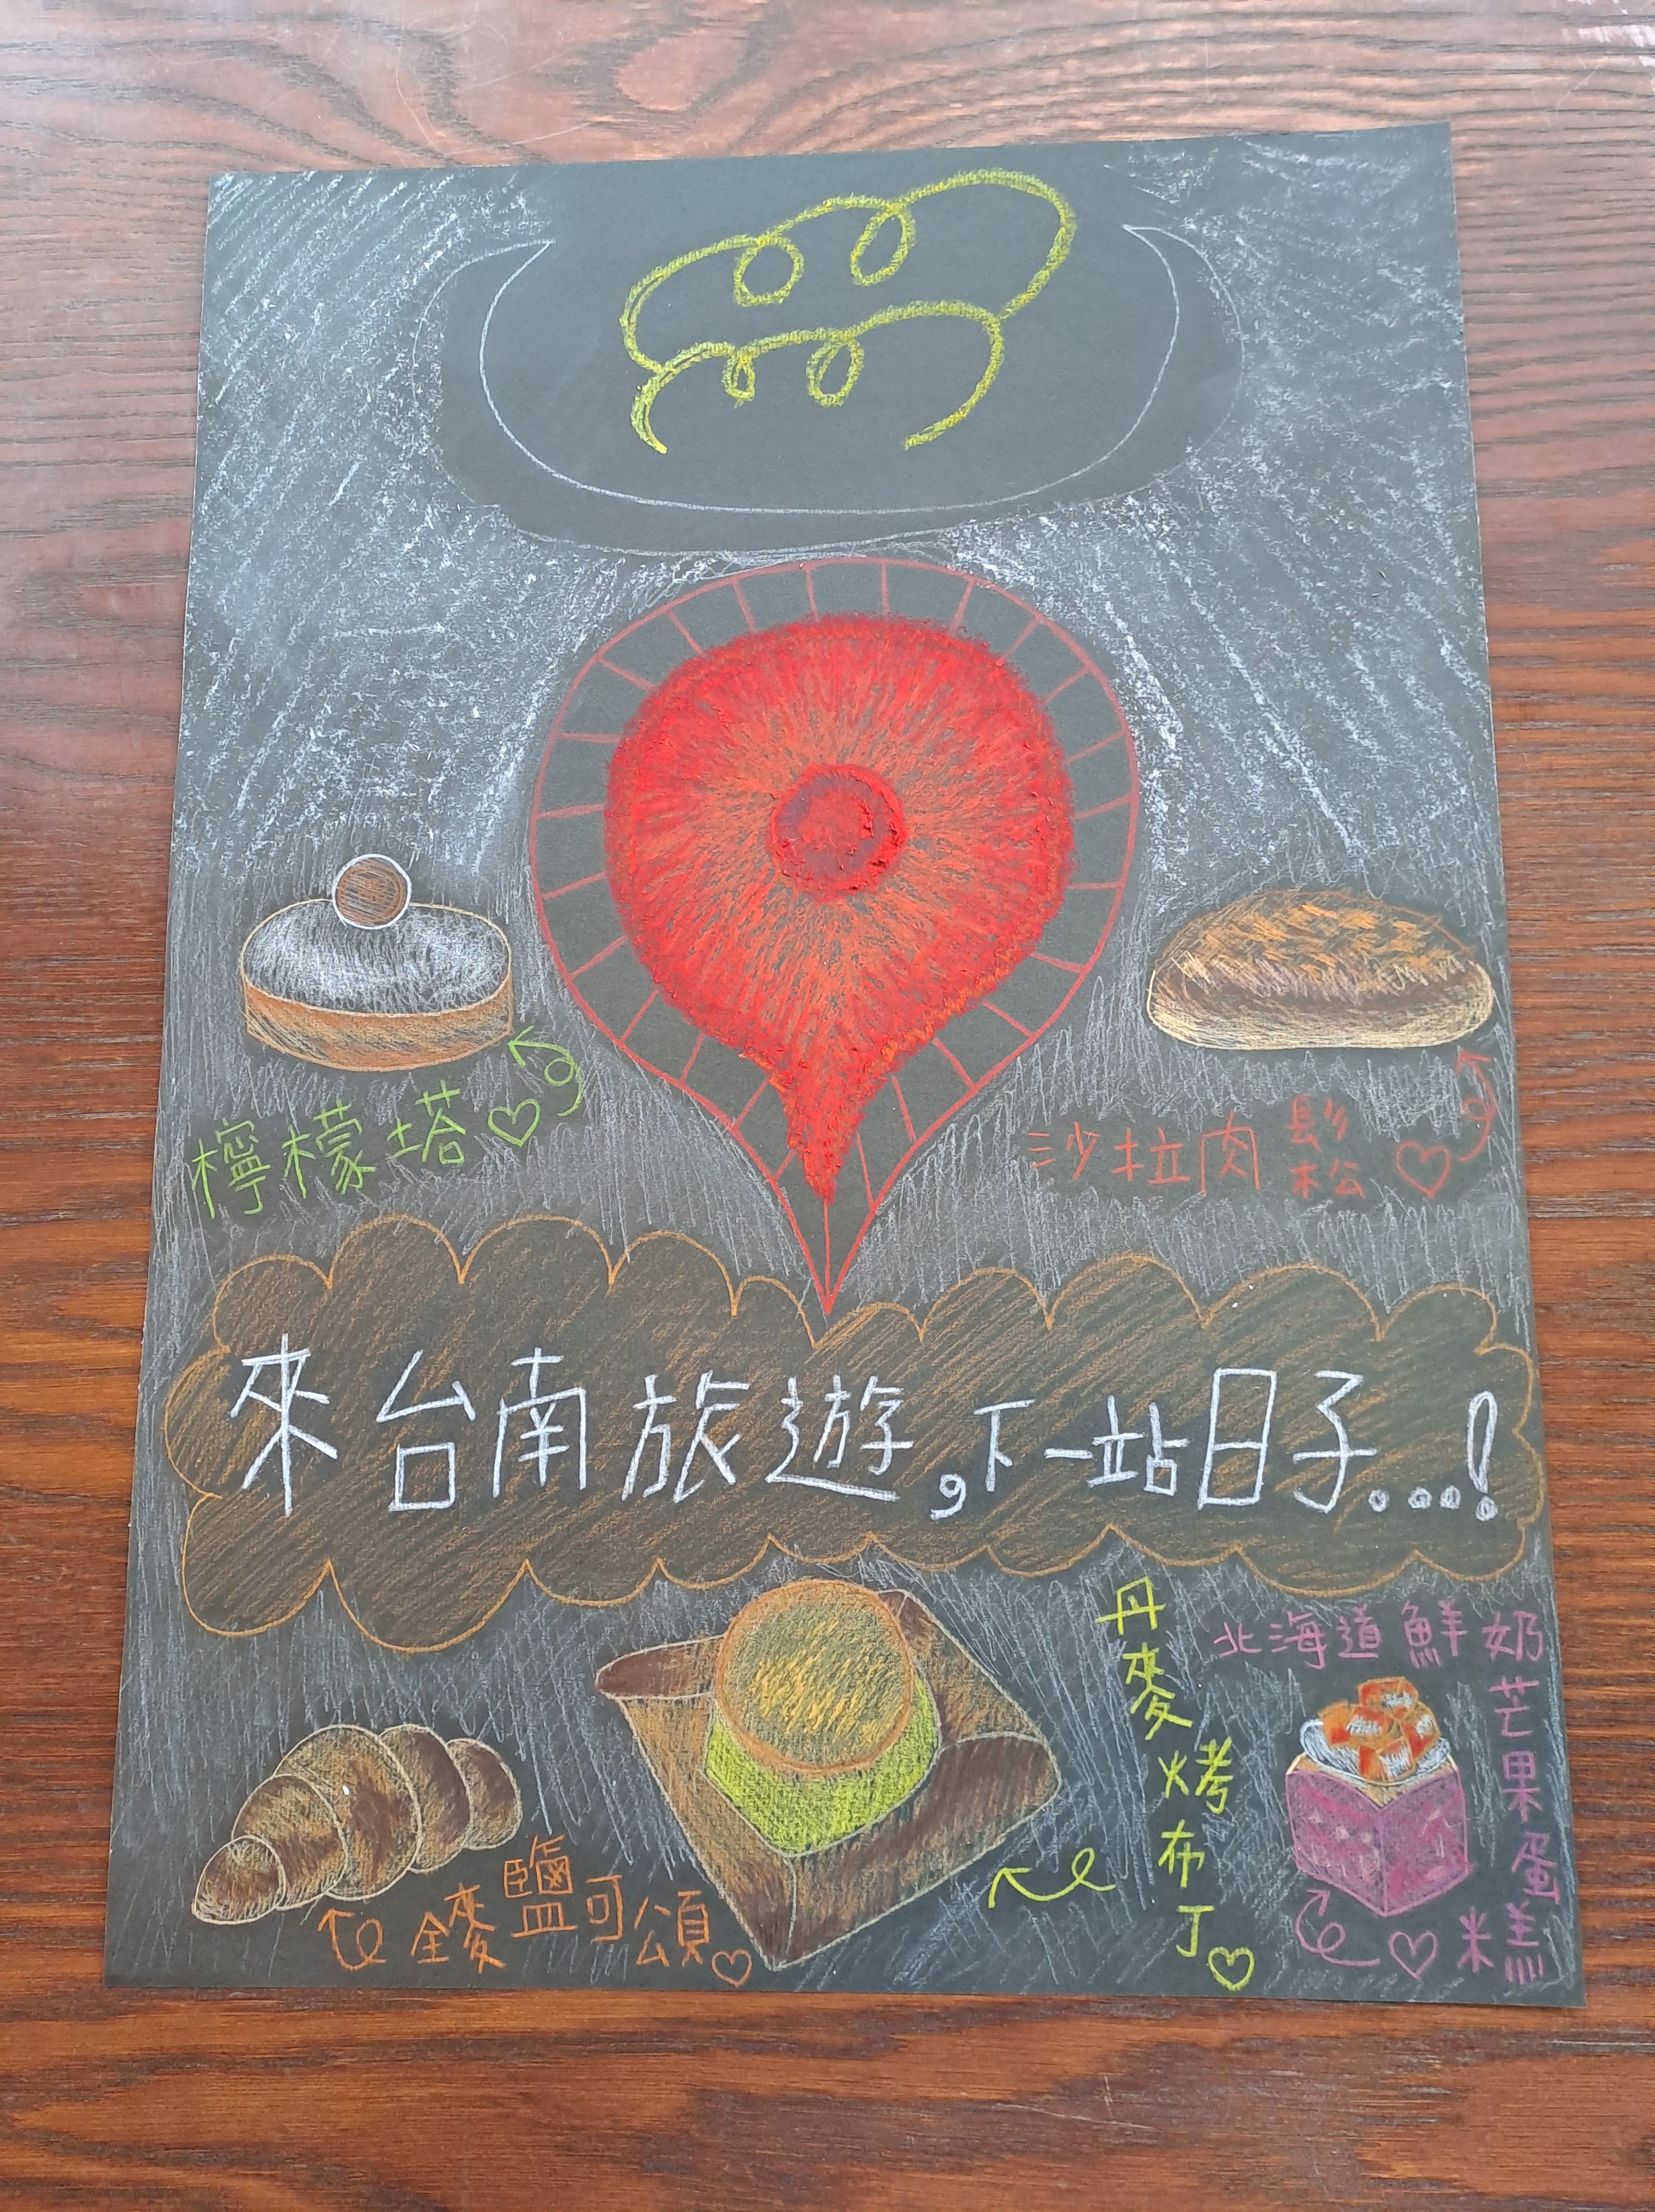 檸檬塔
沙拉肉鬆
來台南旅遊,下一站日子...!
全麥鹽可頌
丹麥烤布丁
北海道鮮奶芒果蛋糕